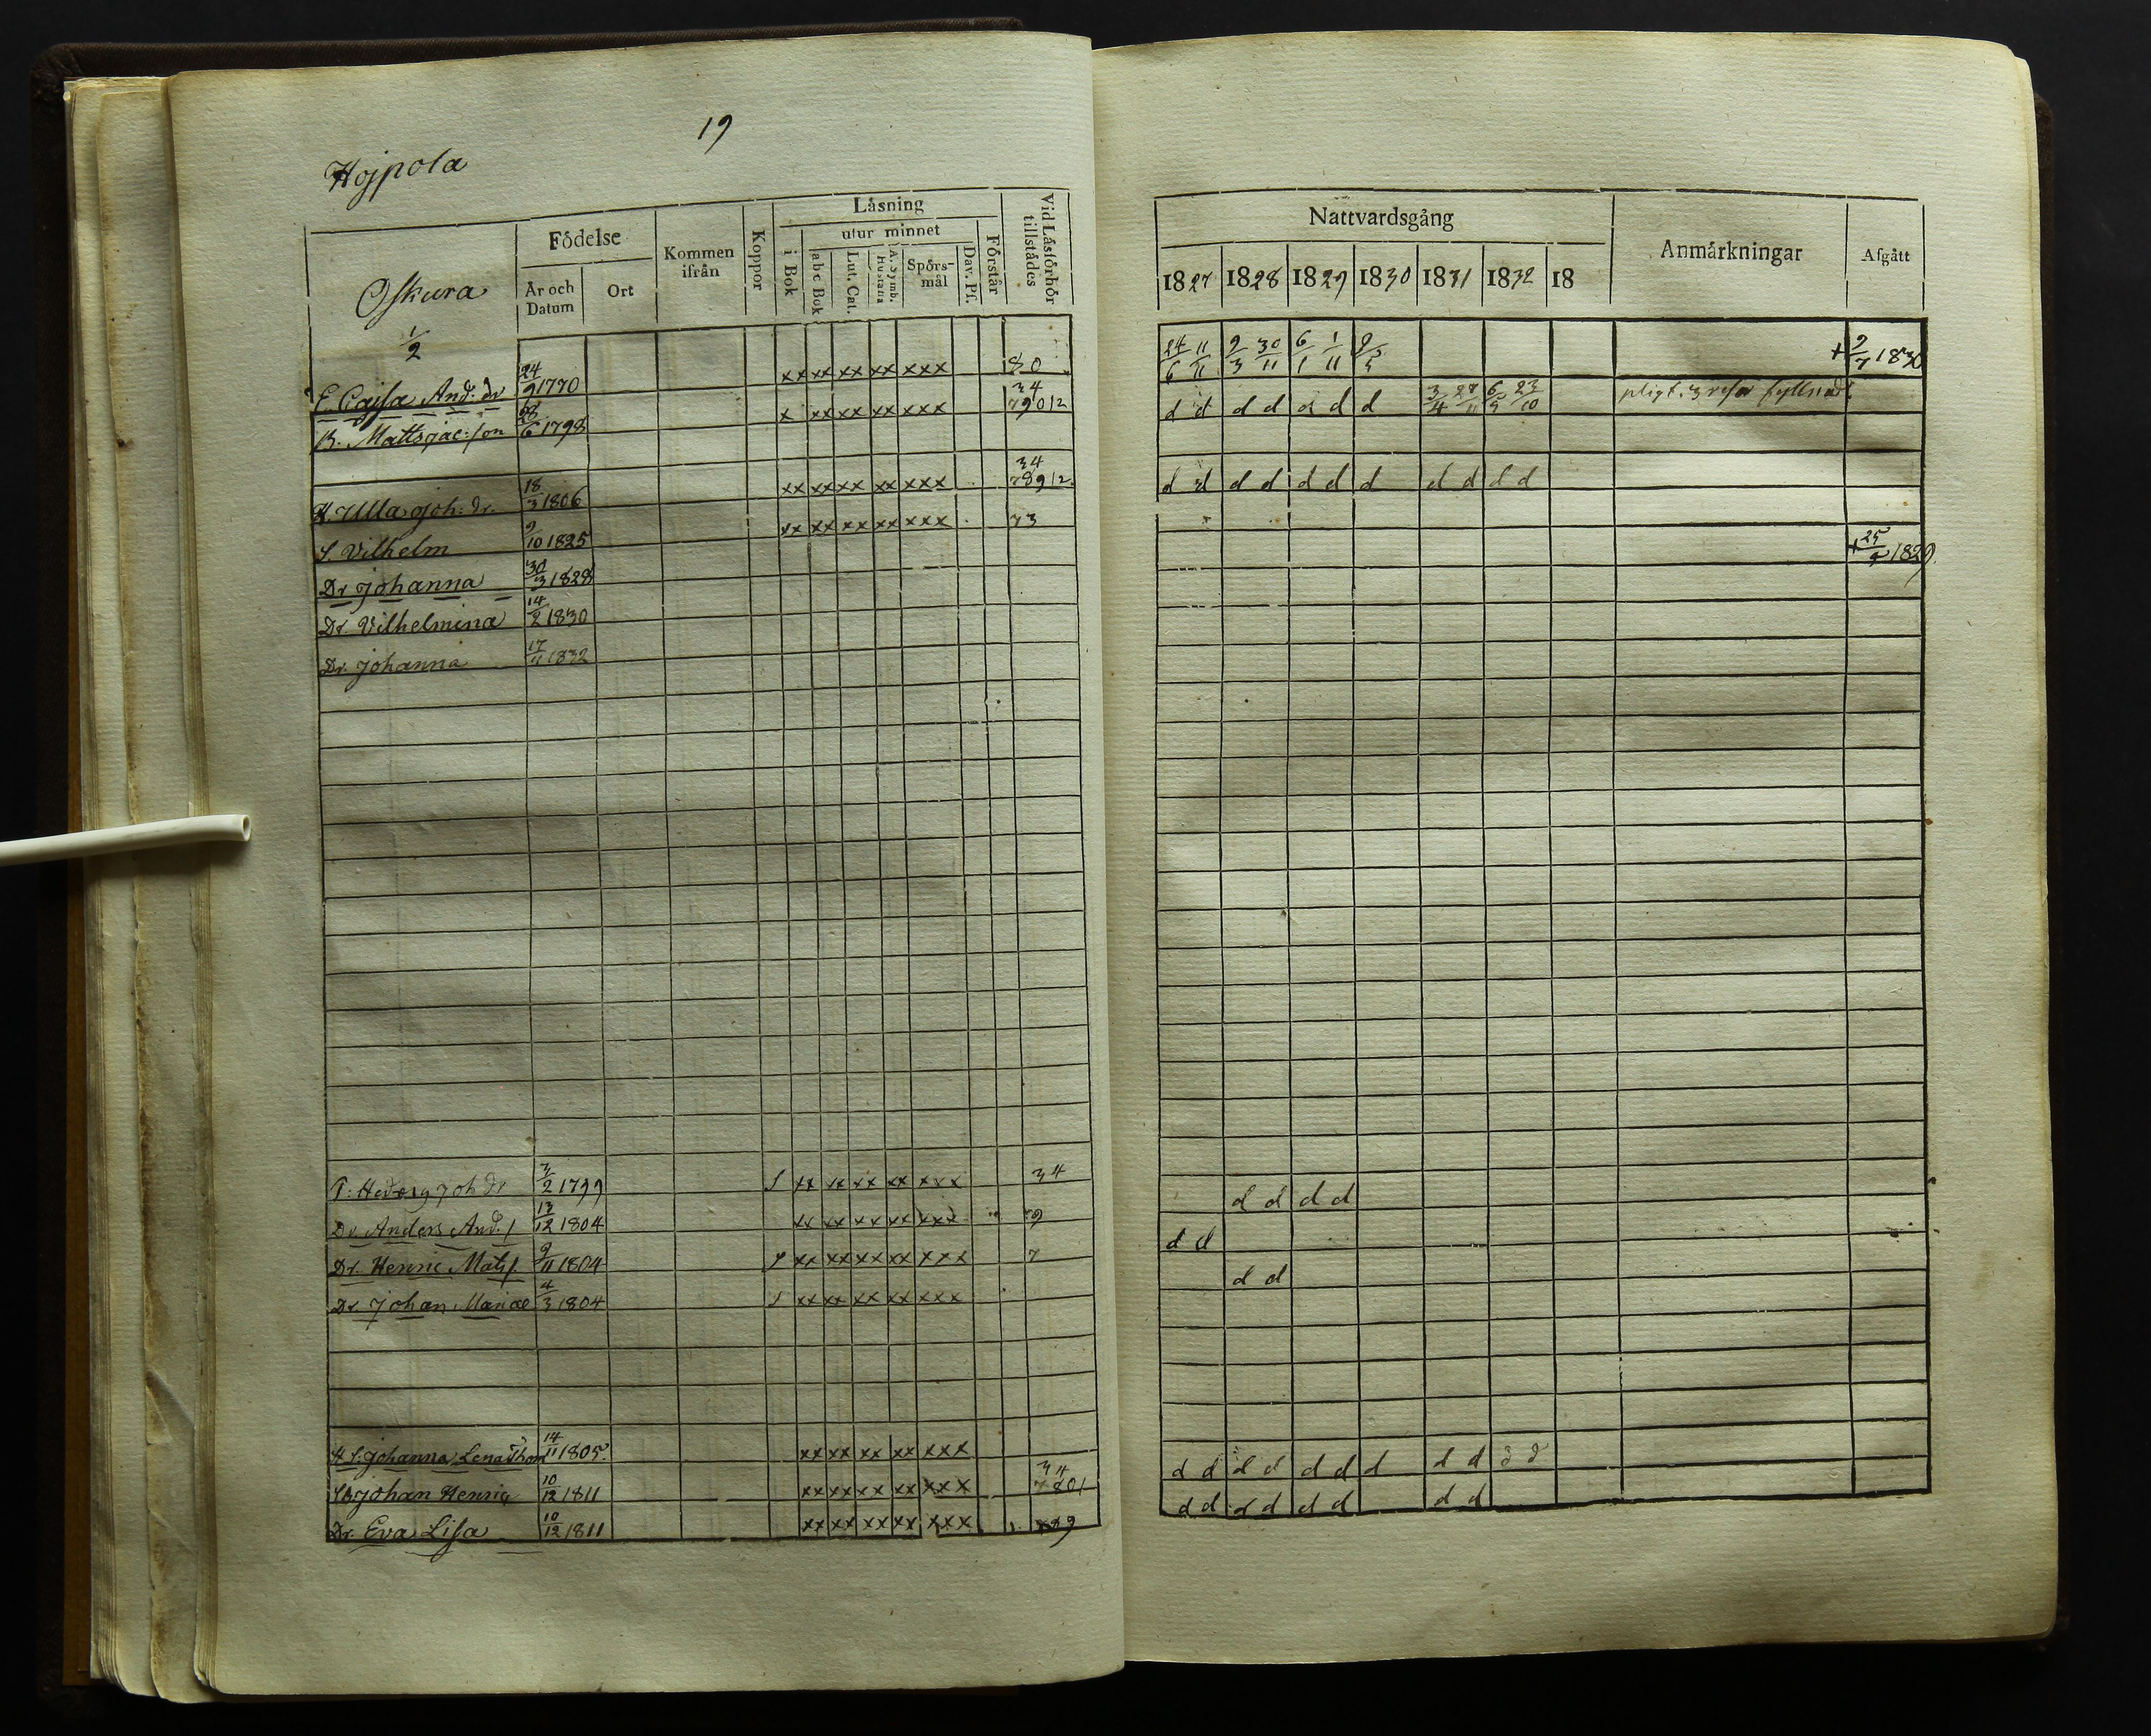 19
Hojpola
Oskura
1/2
Födelse
År och Datum
Ort
Kommen ifrån
Koppor
Läsning
i Bok
utur minnet
abc Bok
Lut. Cat.
A. Symb. Hustafla
Spörs-mål
Dav. Ps.
Förstår
Vid Läsförhör tillstädes
E. Cajsa And. dr 24/9 1770 xx xx xx xx xxx 80
B. Matts Jac:son 28/6 1798 x xx xx xx xxx 34 79012
H. Ulla Joh: dr. 18/3 1806 xx xx xx xx xxx 34 78912
S. Vilhelm 9/10 1825 xx xx xx xx xxx 73
Dr Johanna 30/3 1828
Dr. Vilhelmina 14/2 1830
Dr. Johanna 17/11 1832
P: Hedvig Joh dr 3/2 1799 S xx xx xx xx xxx 34
Dr. Anders And. s 13/12 1804 xx xx xx xx xxx 9
Dr. Henric Mats s. 9/11 1804 S xx xx xx xx xxx 7
Dr Johan Mariae 4/3 1804 S xx xx xx xx xxx
H S. Johanna Lena Thom 14/11 1805 xx xx xx xx xxx
Johan Henric 10/12 1811 xx xx xx xx xxx 34 7801
Dr. Eva Lisa 10/12 1811 xx xx xx xx xxx 9
Nattvardsgång
Anmärkningar
Afgått
1827 1828 1829 1830 1831 1832 18
24/6 11/11 9/3 30/11 6/1 1/11 9/5 + 9/7 1830
d d d d d d d 3/4 27/11 6/5 23/10 pligt. 3 resor fylleri
d d d d d d d d d d d
+ 25/9 1829.
d d d d
d d
d d
d d d d d d d d d d d
d d d d d d d d